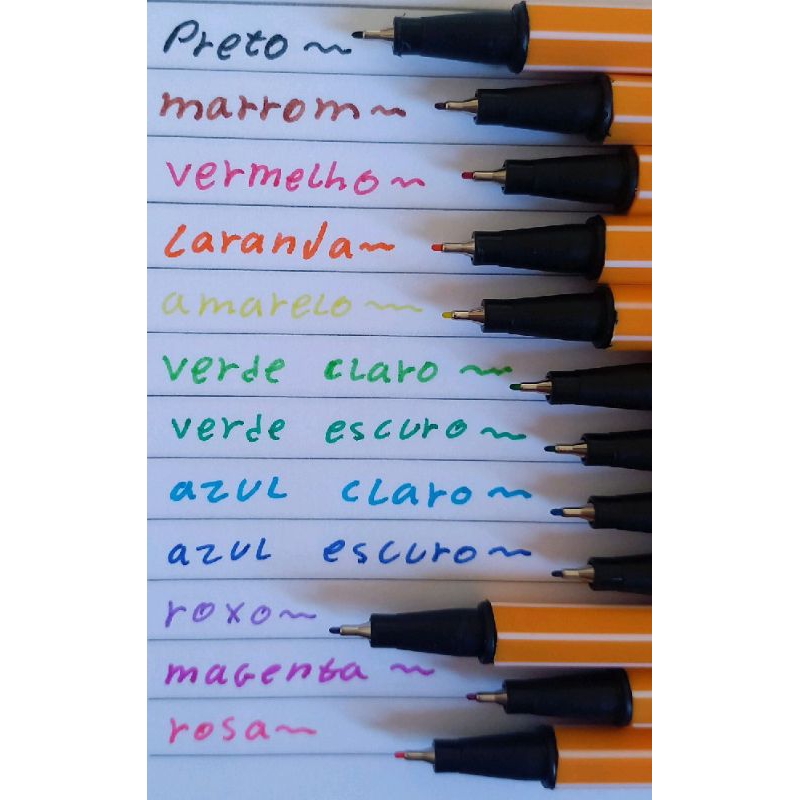 Preto ~
marrom ~
vermelho ~
Laranja ~
amarelo ~
verde claro ~
verde escuro ~
azul claro ~
azul escuro ~
roxo ~
magenta ~
rosa ~